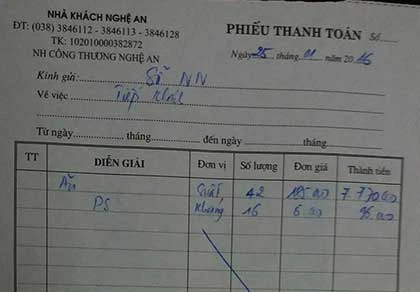 NHÀ KHÁCH NGHỆ AN
ĐT: (038) 3846112 - 3846113 - 3846128
TK: 102010000382872
NH CÔNG THƯƠNG NGHỆ AN
PHIẾU THANH TOÁN Số
Ngày 25 tháng 01 năm 2016
Kính gửi: Sở NN
Về việc Tiếp khách
Từ ngày tháng đến ngày tháng
TT DIỄN GIẢI Đơn vị Số lượng Đơn giá Thành tiền
Ăn Suất 42 185.00
PS 16 6.00 96.000